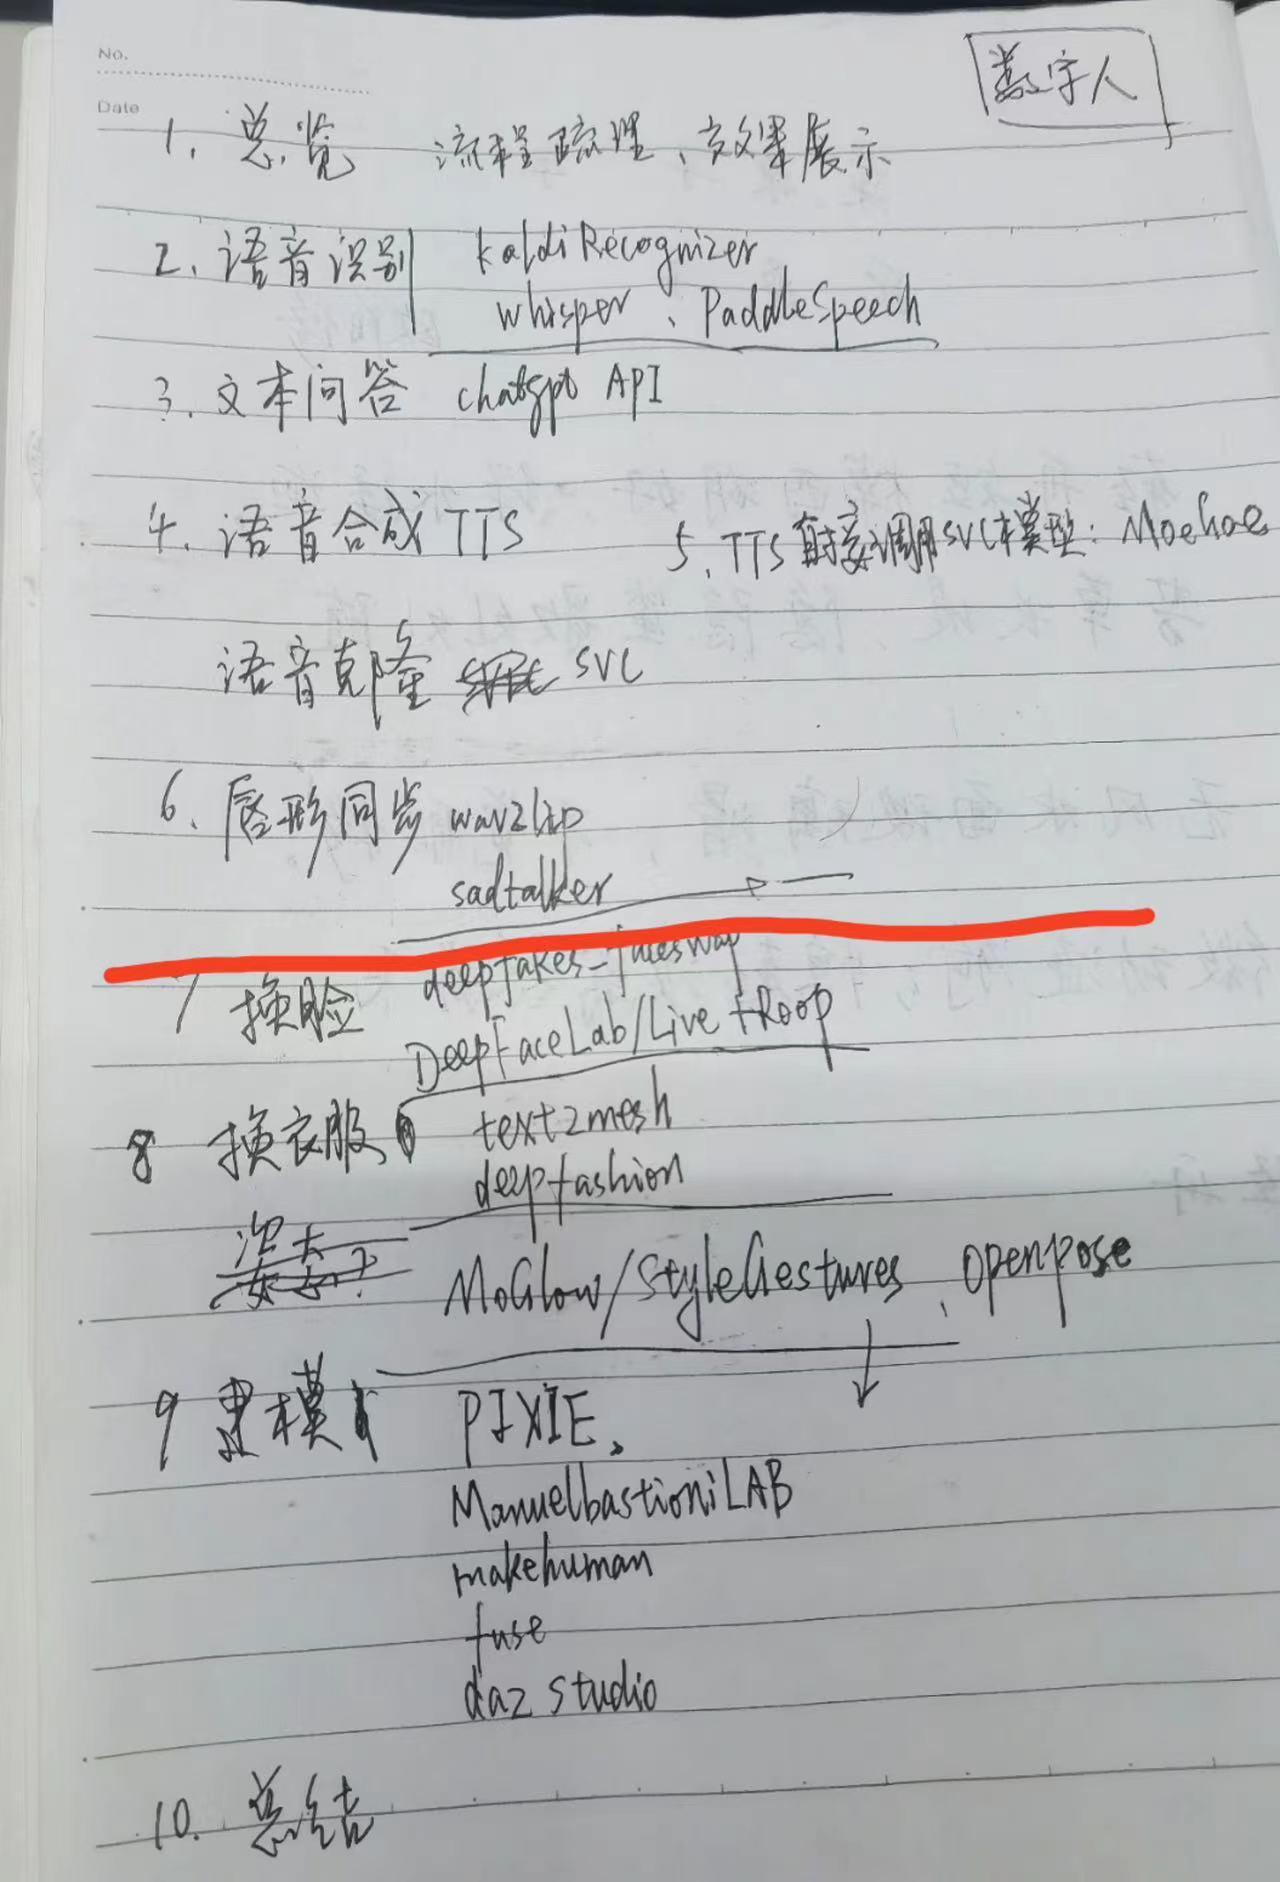 No.
Date
数字人
1. 总览 流程梳理、效果展示
2. 语音识别 kaldiRecognizer
whisper、PaddleSpeech
3. 文本问答 chatgpt API
4. 语音合成 TTS
5. TTS 直接调用SVC模型: Moehoe
语音克隆 SVC
6. 唇形同步 wav2lip
sadtalker
7 换脸 deepfakes-faceswap
DeepFaceLab/Live +Roop
8 换衣服 text2mesh
deepfashion
MoGlow/StyleGestures、openpose
9 建模 PIXIE、
ManuelbastioniLAB
makehuman
fuse
daz studio
10. 总结